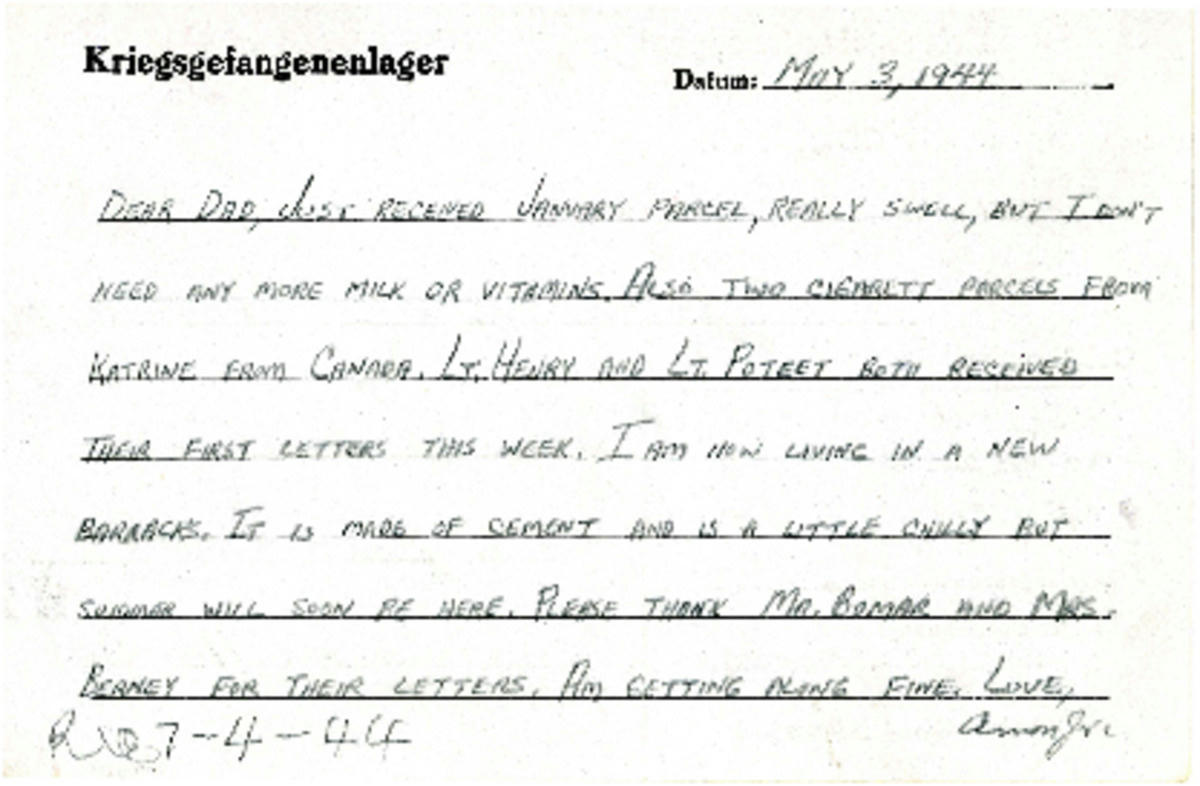 Kriegsgefangenenlager
Datum: MAY 3, 1944
DEAR DAD, JUST RECEIVED JANUARY PARCEL, REALLY SWELL, BUT I DON'T
NEED ANY MORE MILK OR VITAMINS. ALSO TWO CIGARETT PARCELS FROM
KATRINE FROM CANADA. LT. HENRY AND LT. POTEET BOTH RECEIVED
THEIR FIRST LETTERS THIS WEEK. I AM NOW LIVING IN A NEW
BARRACKS. IT IS MADE OF CEMENT AND IS A LITTLE CHILLY BUT
SUMMAR WILL SOON BE HERE. PLEASE THANK MR. BOMAR AND MRS.
BERNEY FOR THEIR LETTERS. AM GETTING ALONG FINE. LOVE,
Jr.
7-4-44